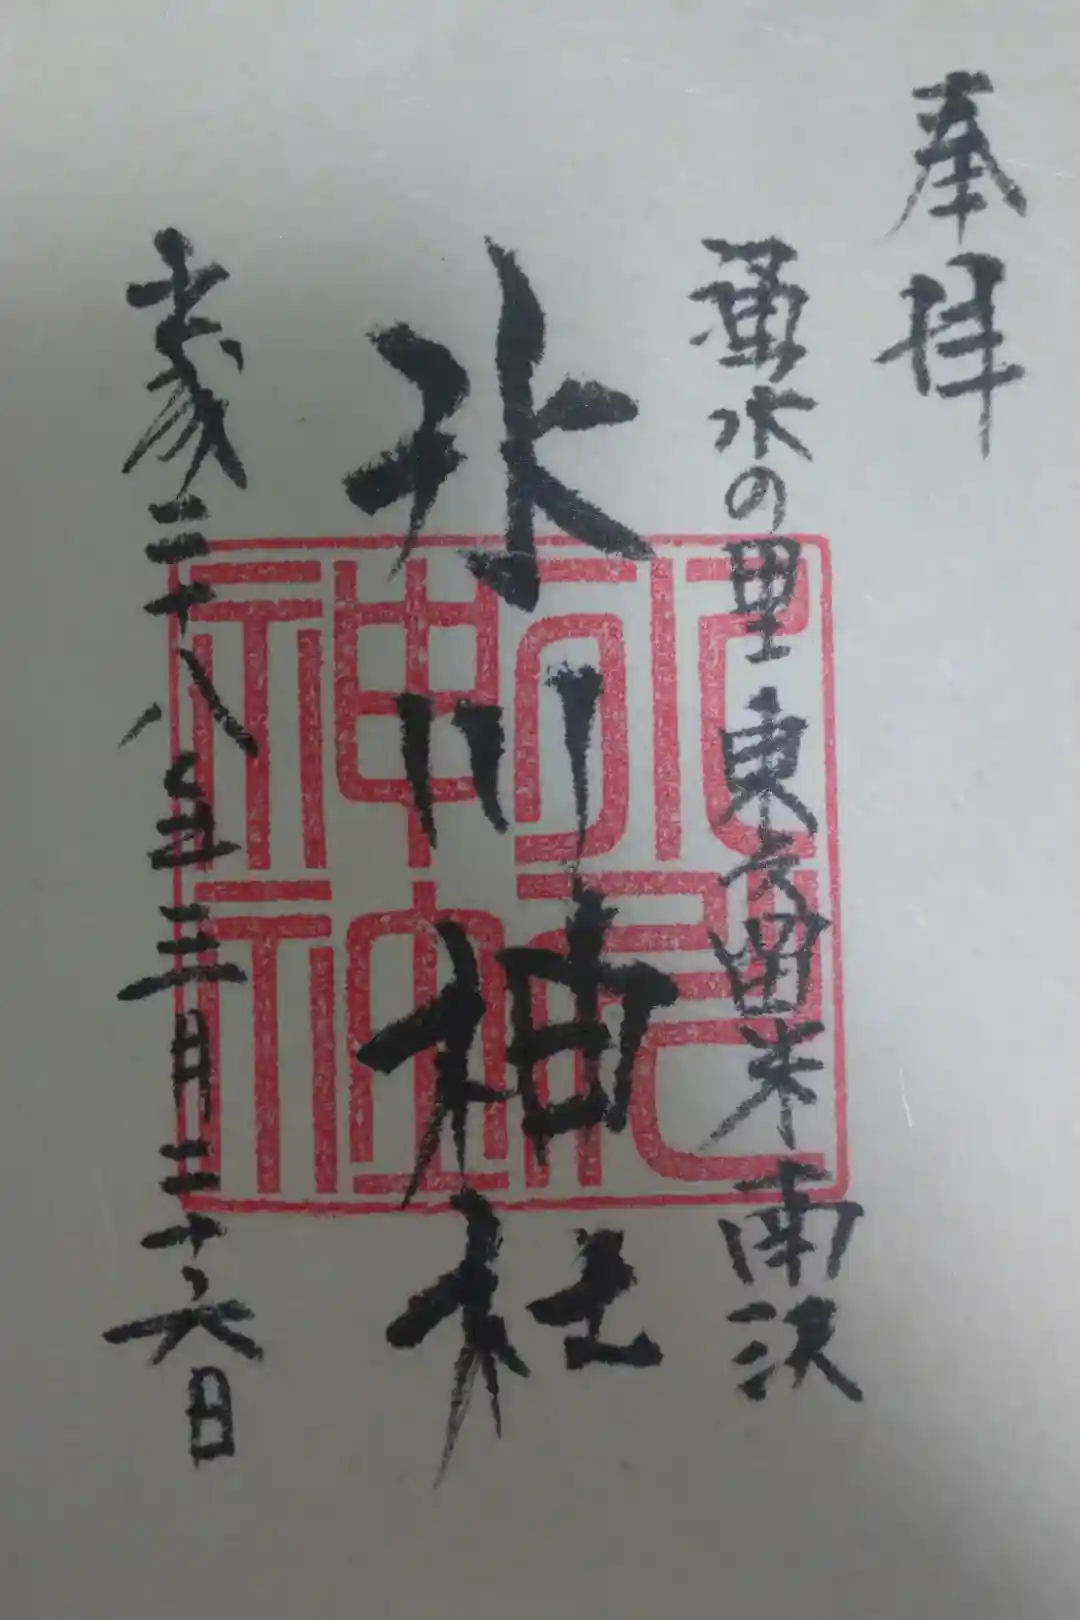 奉拝
湧水の里東久留米南沢
氷川神社
平成二十八年三月二十六日